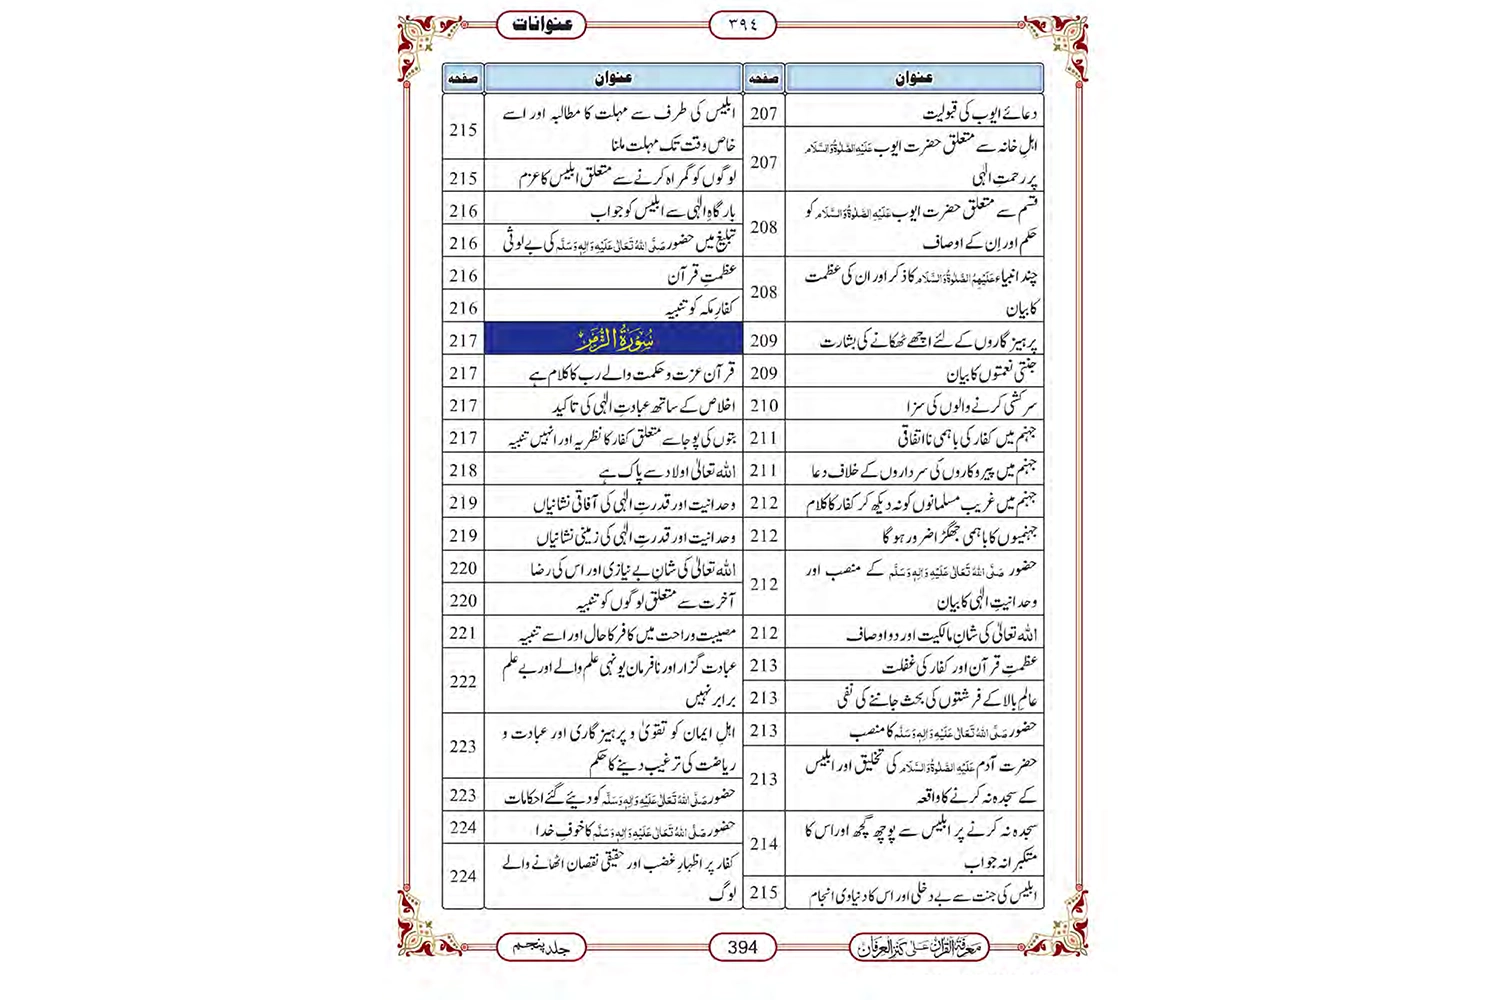 عنوانات
۳۹٤
عنوان
صفحہ
دعائے ایوب کی قبولیت
207
اہلِ خانہ سے متعلق حضرت ایوب عَلَیْہِ الصَّلٰوۃُ وَالسَّلَام
پر رحمتِ الٰہی
207
قسم سے متعلق حضرت ایوب عَلَیْہِ الصَّلٰوۃُ وَالسَّلَام کو
حکم اور اِن کے اوصاف
208
چند انبیاء عَلَیْہِمُ الصَّلٰوۃُ وَالسَّلَام کا ذکر اور ان کی عظمت
کا بیان
208
پرہیز گاروں کے لئے اچھے ٹھکانے کی بشارت
209
جنتی نعمتوں کا بیان
209
سرکشی کرنے والوں کی سزا
210
جہنم میں کفار کی باہمی نااتفاقی
211
جہنم میں پیروکاروں کی سرداروں کے خلاف دعا
211
جہنم میں غریب مسلمانوں کو نہ دیکھ کر کفار کا کلام
212
جہنمیوں کا باہمی جھگڑا ضرور ہوگا
212
حضور صَلَّی اللہُ تَعَالٰی عَلَیْہِ وَاٰلِہٖ وَسَلَّم کے منصب اور
وحدانیتِ الٰہی کا بیان
212
اللہ تعالیٰ کی شانِ مالکیت اور دو اوصاف
212
عظمتِ قرآن اور کفار کی غفلت
213
عالمِ بالا کے فرشتوں کی بحث جاننے کی نفی
213
حضور صَلَّی اللہُ تَعَالٰی عَلَیْہِ وَاٰلِہٖ وَسَلَّم کا منصب
213
حضرت آدم عَلَیْہِ الصَّلٰوۃُ وَالسَّلَام کی تخلیق اور ابلیس
کے سجدہ نہ کرنے کا واقعہ
213
سجدہ نہ کرنے پر ابلیس سے پوچھ گچھ اور اس کا
متکبرانہ جواب
214
ابلیس کی جنت سے بے دخلی اور اس کا دنیاوی انجام
215
عنوان
صفحہ
ابلیس کی طرف سے مہلت کا مطالبہ اور اسے
خاص وقت تک مہلت ملنا
215
لوگوں کو گمراہ کرنے سے متعلق ابلیس کا عزم
215
بارگاہِ الٰہی سے ابلیس کو جواب
216
تبلیغ میں حضور صَلَّی اللہُ تَعَالٰی عَلَیْہِ وَاٰلِہٖ وَسَلَّم کی بے لوثی
216
عظمتِ قرآن
216
کفارِ مکہ کو تنبیہ
216
سُوْرَۃُ الزُّمَر
217
قرآن عزت و حکمت والے رب کا کلام ہے
217
اخلاص کے ساتھ عبادتِ الٰہی کی تاکید
217
بتوں کی پوجا سے متعلق کفار کا نظریہ اور انہیں تنبیہ
217
اللہ تعالیٰ اولاد سے پاک ہے
218
وحدانیت اور قدرتِ الٰہی کی آفاقی نشانیاں
219
وحدانیت اور قدرتِ الٰہی کی زمینی نشانیاں
219
اللہ تعالیٰ کی شانِ بے نیازی اور اس کی رضا
220
آخرت سے متعلق لوگوں کو تنبیہ
220
مصیبت و راحت میں کافر کا حال اور اسے تنبیہ
221
عبادت گزار اور نافرمان یونہی علم والے اور بے علم
برابر نہیں
222
اہلِ ایمان کو تقویٰ و پرہیز گاری اور عبادت و
ریاضت کی ترغیب دینے کا حکم
223
حضور صَلَّی اللہُ تَعَالٰی عَلَیْہِ وَاٰلِہٖ وَسَلَّم کو دیئے گئے احکامات
223
حضور صَلَّی اللہُ تَعَالٰی عَلَیْہِ وَاٰلِہٖ وَسَلَّم کا خوفِ خدا
224
کفار پر اظہارِ غضب اور حقیقی نقصان اٹھانے والے
لوگ
224
معرفۃ القرآن علی کنز العرفان
394
جلد پنجم